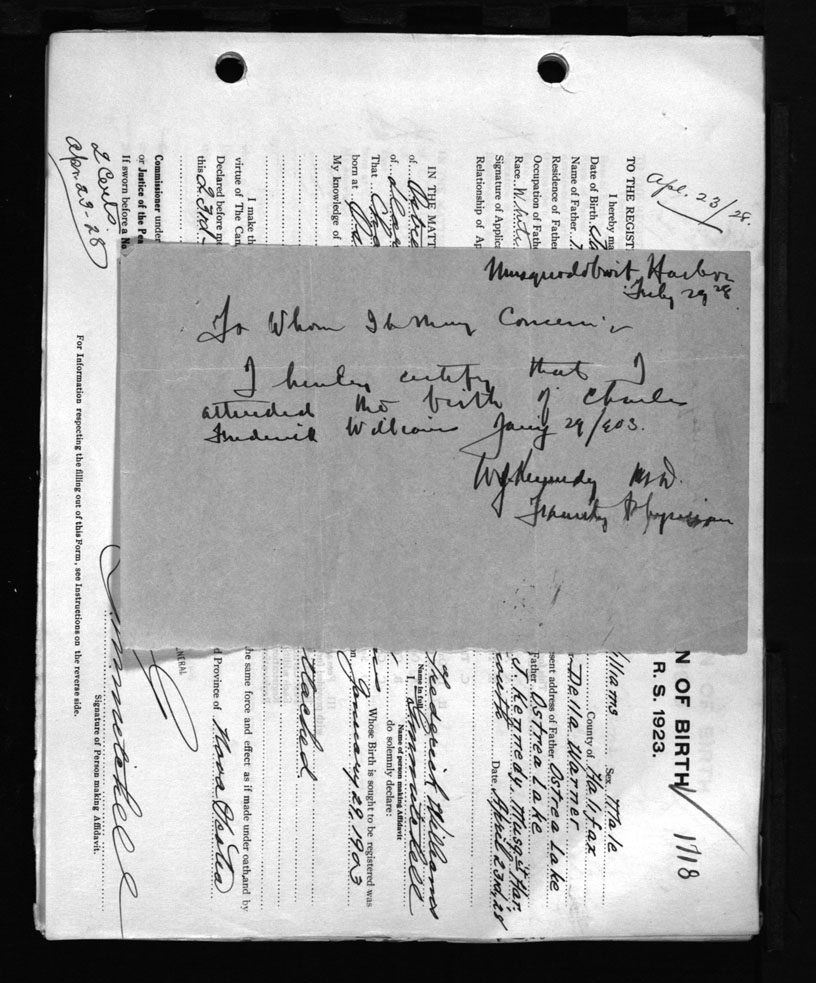 Musquodoboit Harbor
July 29 28
To Whom It May Concern:-
I hereby certify that I
attended the birth of Charles
Frederick Williams Jan'y 29/903.
W J Kennedy M.D.
Family Physician
Apl. 23/28.
TO THE REGIST
I hereby ma
Date of Birth
Name of Father
Residence of Father
Occupation of Fathe
Race White
Signature of Applica
Relationship of Ap
IN THE MATT
of
of
That
born at
My knowledge of
I make th
virtue of The Can
Declared before me
this 23rd
Commissioner under
or Justice of the Pea
If sworn before a No
2 Certs.
Apr 23-28
N OF BIRTH
R. S. 1923.
1718
lliams Sex Male
County of Halifax
Della Warner
sent address of Father Ostrea Lake
Father Ostrea Lake
J. Kennedy, Musq't Har.
Date April 23rd, 28
Frederick Williams
Name in full
I,
Name of person making Affidavit
do solemnly declare:
Whose Birth is sought to be registered was
on January 29, 1903
ttached
he same force and effect as if made under oath, and by
d Province of Nova Scotia
NERAL
Signature of Person making Affidavit.
For Information respecting the filling out of this Form, see Instructions on the reverse side.